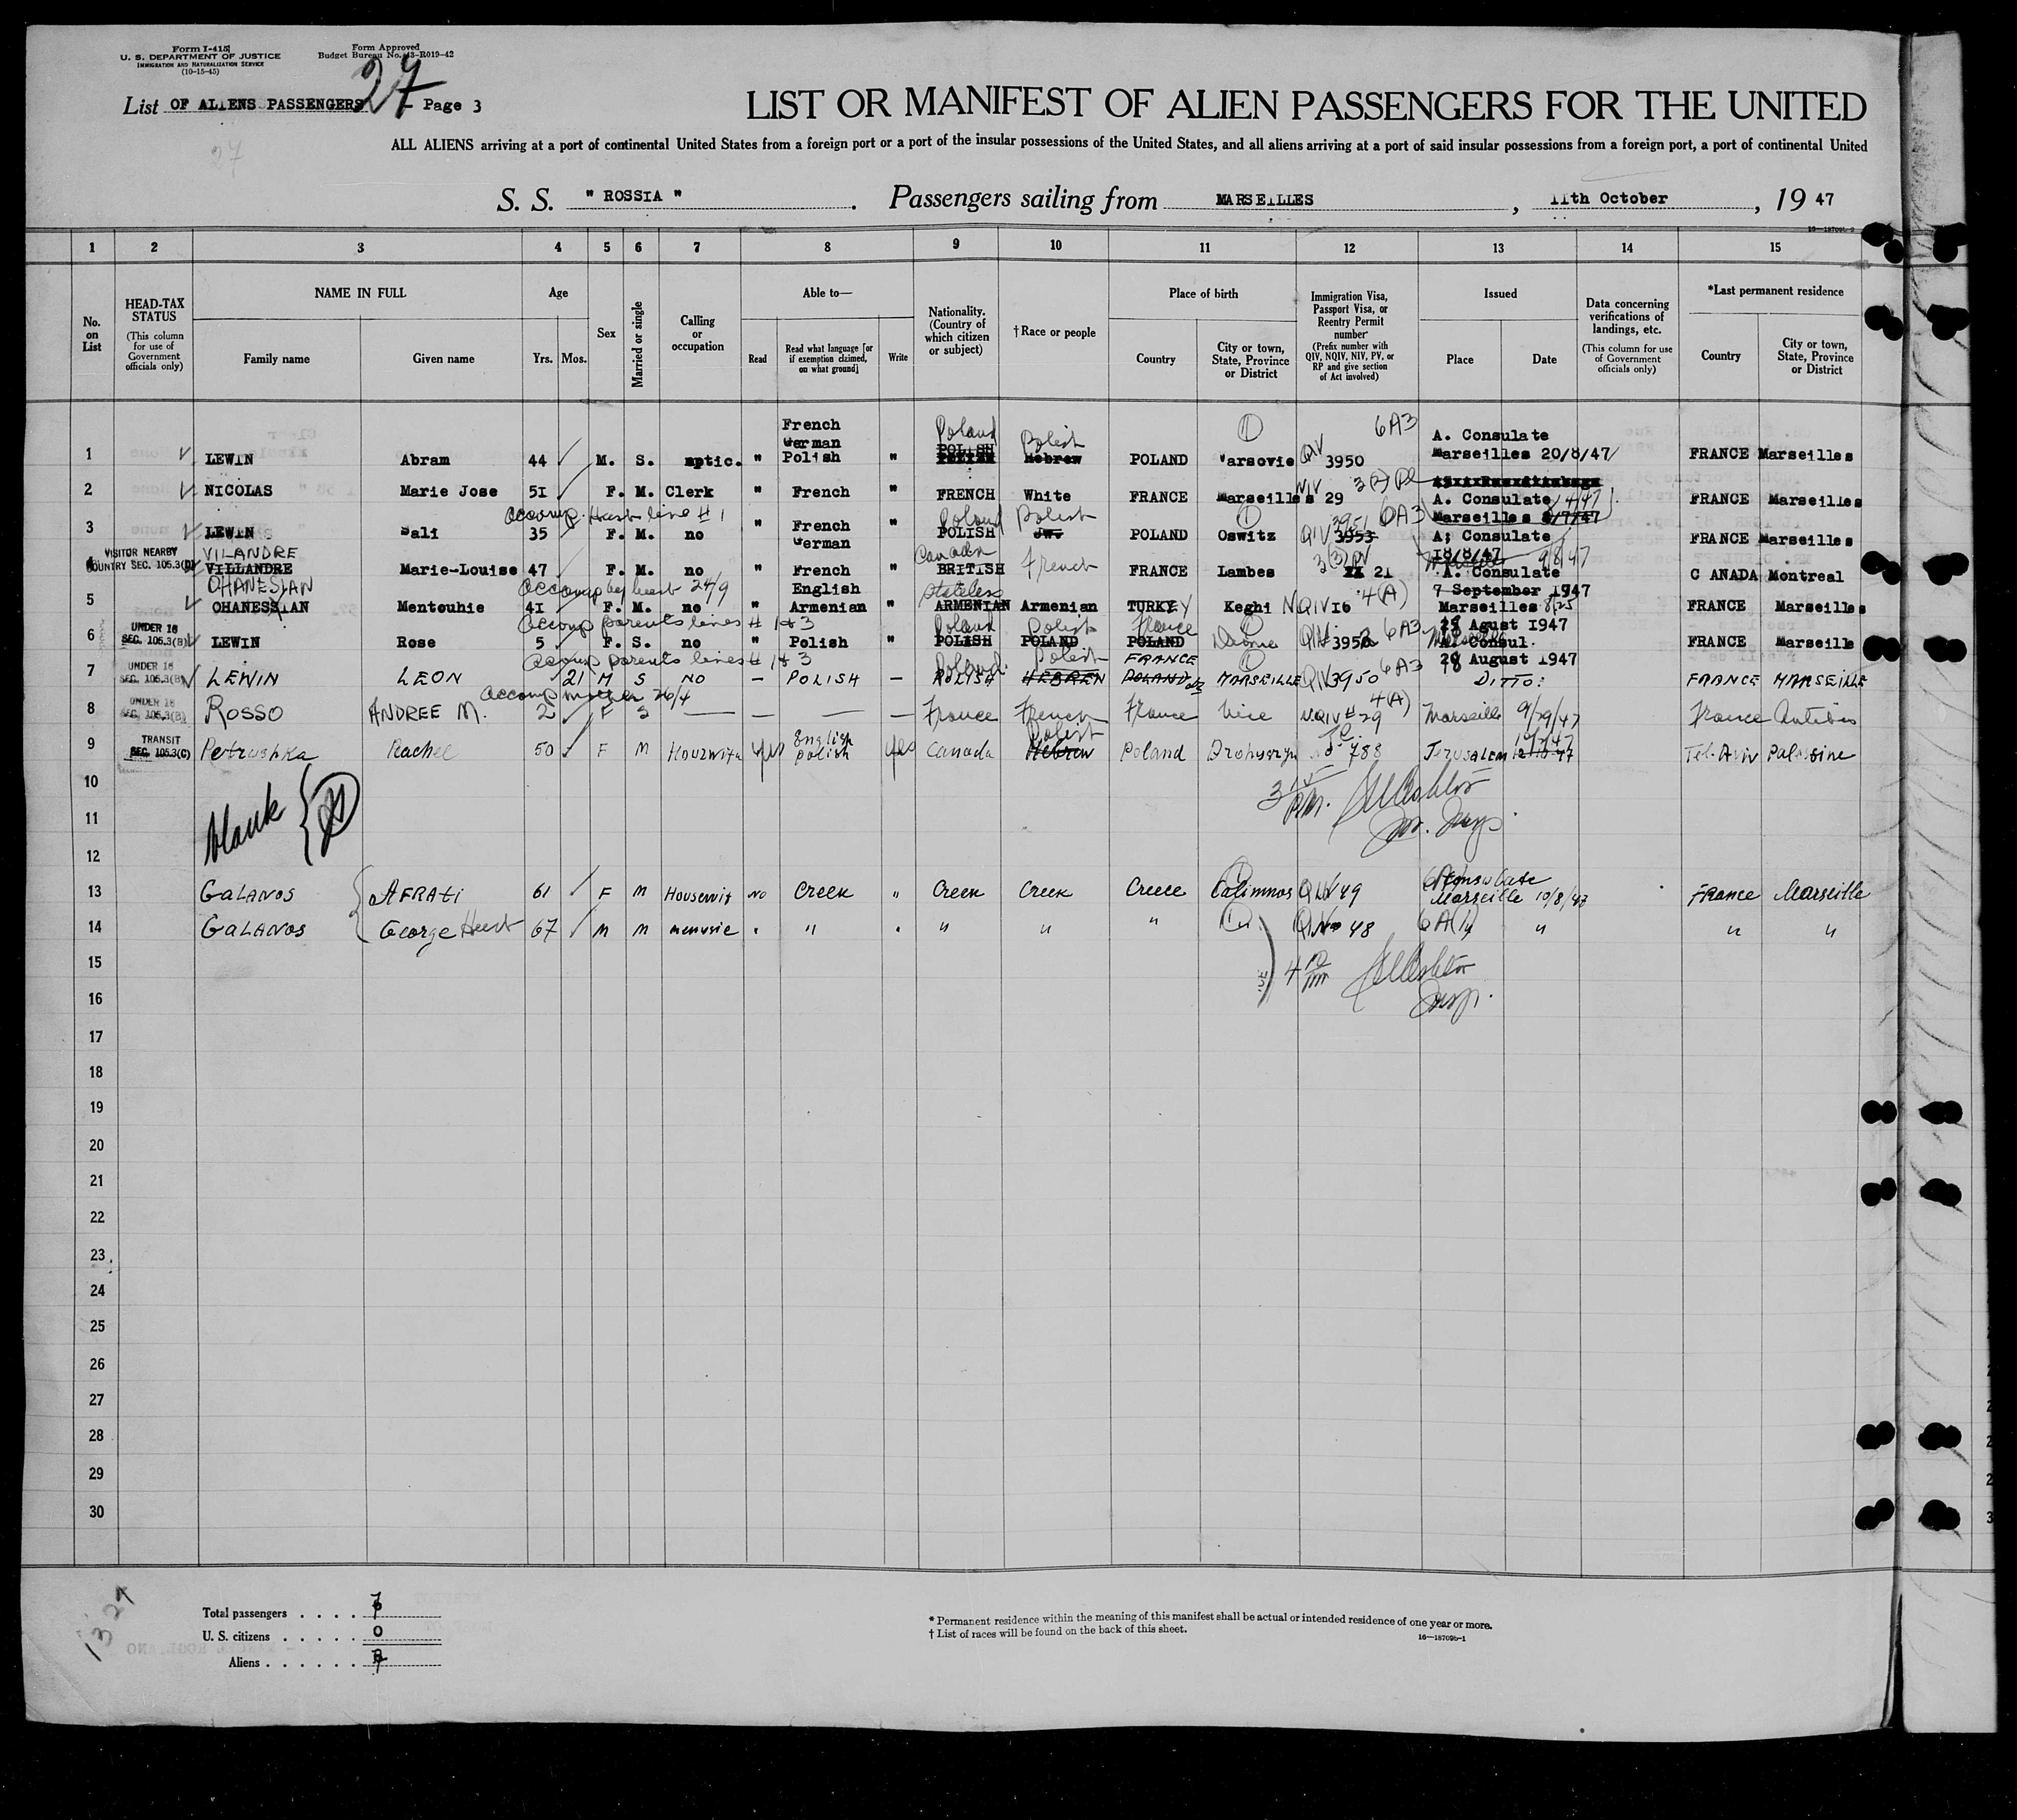 Form I-415
U. S. DEPARTMENT OF JUSTICE
IMMIGRATION AND NATURALIZATION SERVICE
(10-15-45)
Form Approved
Budget Bureau No. 43-R019-42
27
List OF ALIENS PASSENGERS Page 3
LIST OR MANIFEST OF ALIEN PASSENGERS FOR THE UNITED
ALL ALIENS arriving at a port of continental United States from a foreign port or a port of the insular possessions of the United States, and all aliens arriving at a port of said insular possessions from a foreign port, a port of continental United
S. S. " ROSSIA " . Passengers sailing from MARSEILLES , 11th October , 19 47
1 2 3 4 5 6 7 8 9 10 11 12 13 14 15
No. on List
HEAD-TAX STATUS (This column for use of Government officials only)
NAME IN FULL
Family name Given name
Age
Yrs. Mos.
Sex
Married or single
Calling or occupation
Able to—
Read Read what language [or if exemption claimed, on what ground] Write
Nationality. (Country of which citizen or subject)
† Race or people
Place of birth
Country City or town, State, Province or District
Immigration Visa, Passport Visa, or Reentry Permit number (Prefix number with QIV, NQIV, NIV, PV, or RP and give section of Act involved)
Issued
Place Date
Data concerning verifications of landings, etc. (This column for use of Government officials only)
*Last permanent residence
Country City or town, State, Province or District
1 LEWIN Abram 44 M. S. " French German Polish " Poland POLISH Polish Hebrew POLAND Varsovie QIV 3950 6A3 A. Consulate Marseilles 20/8/47 FRANCE Marseilles
2 NICOLAS Marie Jose 51 F. M. Clerk " French " FRENCH White FRANCE Marseilles 29 A. Consulate Marseilles FRANCE Marseilles
accomp. Husb line #1
3 LEWIN Sali 35 F. M. no " French German " Poland POLISH Polish POLAND Oswitz QIV 3951 3953 6A3 A; Consulate 18/8/47 FRANCE Marseilles
VISITOR NEARBY COUNTRY SEC. 105.3(D)
4 VILANDRE VILLANDRE Marie-Louise 47 F. M. no " French English " Canada BRITISH French FRANCE Lambes 3(3) PV 21 9/8/47 A. Consulate 7 September 1947 CANADA Montreal
accomp by husb 24/9
5 OHANESIAN OHANESSIAN Mentouhie 41 F. M. no " Armenian " Stateless ARMENIAN Armenian TURKEY Keghi NQIV 16 4(A) Marseilles 8/25 25 Agust 1947 FRANCE Marseilles
accomp parents lines # 1 & 3
UNDER 16 SEC. 105.3(B)
6 LEWIN Rose 5 F. S. no " Polish " Poland POLISH Polish POLAND France POLAND QIV 3952 6A3 A. Consul. 20 August 1947 FRANCE Marseille
accomp parents lines # 1 & 3
UNDER 16 SEC. 105.3(B)
7 LEWIN LEON 21 M S NO — POLISH — Poland POLISH Polish HEBREW FRANCE POLAND MARSEILLE QIV 3950 6A3 DITTO: FRANCE MARSEILLE
accomp mother 26/4
UNDER 16 SEC. 105.3(B)
8 ROSSO ANDREE M. 2 F S — — — — France French France Nice NQIV # 29 4(A) Marseille 9/29/47 France Antibes
TRANSIT SEC. 105.3(C)
9 Petrushka Rachel 50 F M Houzwifa yes English polish yes Canada Polish Hebrew Poland 788 Jerusalem Tel-Aviv Palestine
10
11 blank
12
3 15 P.M.
13 GALANOS AFRATI 61 F M Housewif NO Creek " Creek Creek Creece Calimnos QIV 49 Consulate Marseille 10/8/47 France Marseille
14 GALANOS George Husb 67 M M " " " " " " QIV 48 6A(1) " " "
15
16
17
18
19
20
21
22
23
24
25
26
27
28
29
30
Total passengers . . . . 7
U. S. citizens . . . . . 0
Aliens . . . . . . 7
* Permanent residence within the meaning of this manifest shall be actual or intended residence of one year or more.
† List of races will be found on the back of this sheet.
16—18709b-1